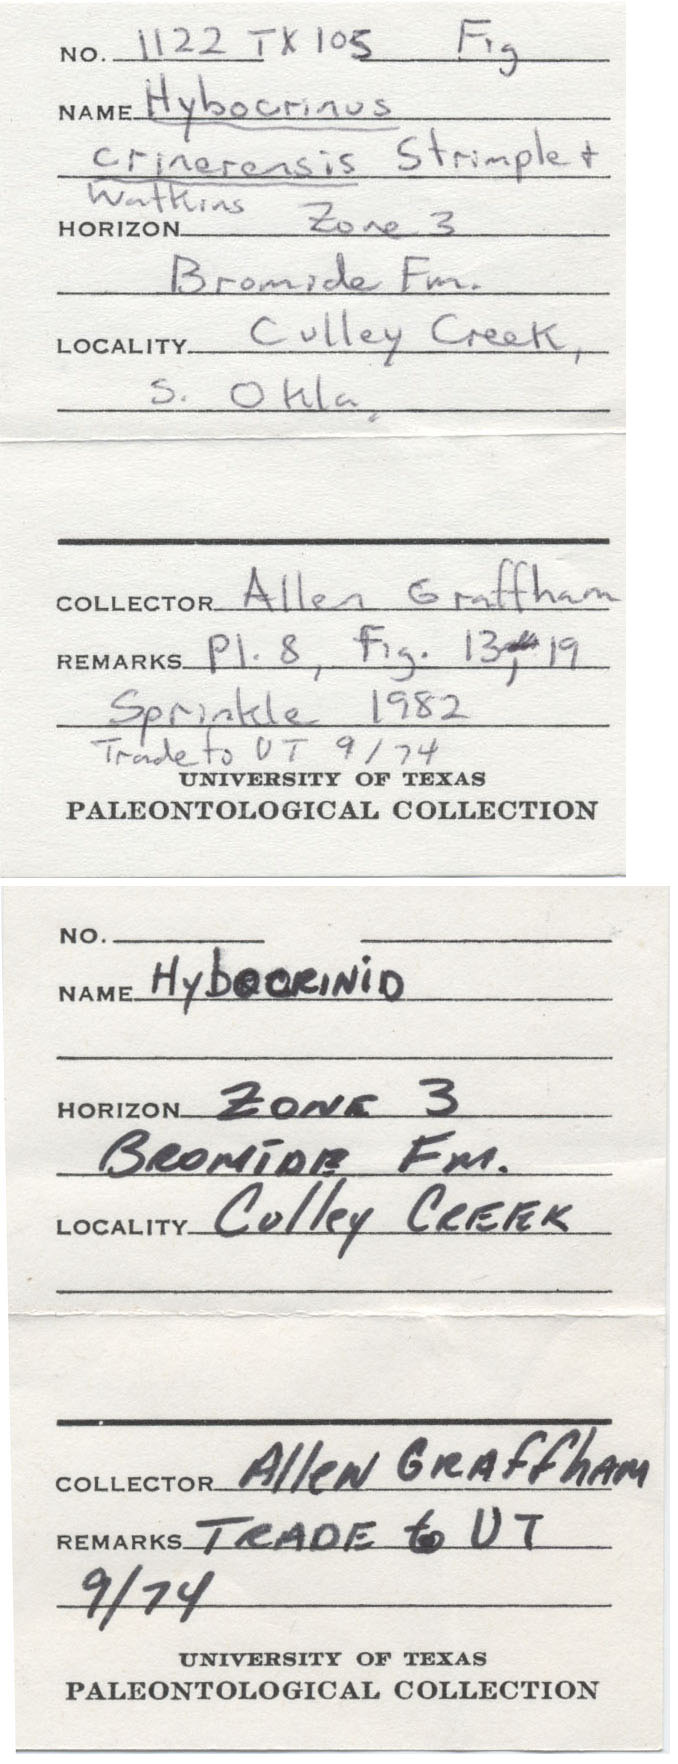 NO. 1122 TX 105 Fig
NAME Hybocrinus
crinerensis Strimple +
Watkins
HORIZON Zone 3
Bromide Fm.
LOCALITY Culley Creek,
S. Okla.
COLLECTOR Allen Graffham
REMARKS Pl. 8, Fig. 13, 19
Sprinkle 1982
Trade to UT 9/74
UNIVERSITY OF TEXAS
PALEONTOLOGICAL COLLECTION
NO.
NAME HybOCRINiD
HORIZON ZONE 3
BROMIDE Fm.
LOCALITY Culley CREEK
COLLECTOR AlleN GRAffhAM
REMARKS TRADE to UT
9/74
UNIVERSITY OF TEXAS
PALEONTOLOGICAL COLLECTION